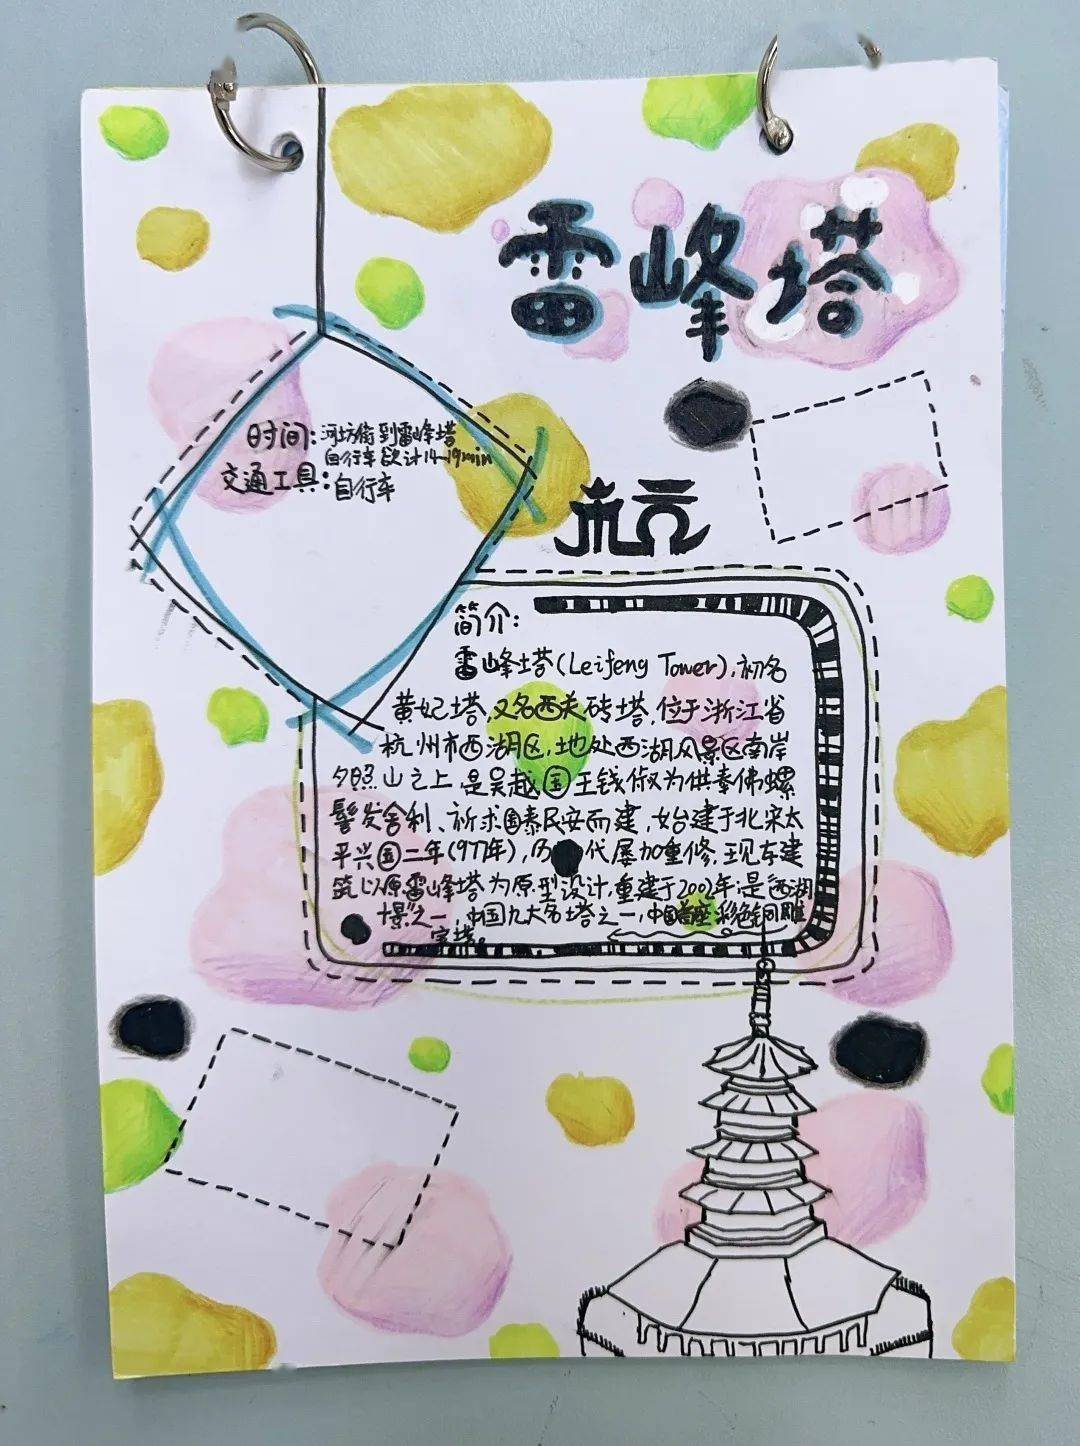 雷峰塔
时间:河坊街到雷峰塔
自行车 14~19min
交通工具:自行车
杭
简介:
雷峰塔(Leifeng Tower),初名
黄妃塔,又名西关砖塔,位于浙江省
杭州市西湖区,地处西湖风景区南岸
夕照山之上.是吴越国王钱俶为供奉佛螺
髻发舍利、祈求国泰民安而建,始建于北宋太
平兴国二年(977年),历代屡加重修.现存建
筑以原雷峰塔为原型设计,重建于2002年,是“西湖
十景”之一,中国九大名塔之一,中国首座彩色铜雕
宝塔。